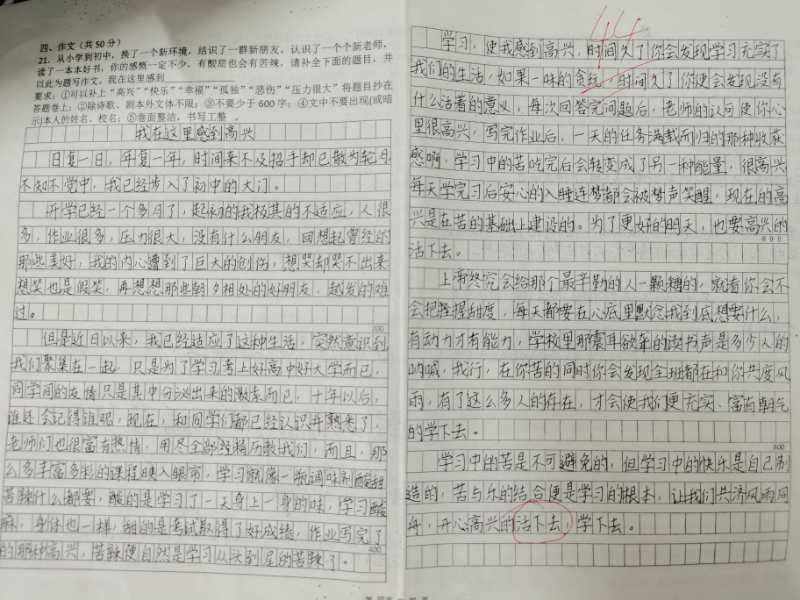 四、作文(共50分)
21. 从小学到初中，换了一个新环境，结识了一群新朋友，认识了一个个新老师，
读了一本本好书，你的感慨一定不少，有酸甜也会有苦辣，请补全下面的题目，并
以此为题写作文。我在这里感到
要求：①可以补上“高兴”“快乐”“幸福”“孤独”“悲伤”“压力很大”等将题目抄在
答题卷上；②除诗歌、剧本外文体不限；③不要少于600字；④文中不要出现(或暗
示)本人的姓名、校名；⑤卷面整洁，书写工整。
我在这里感到高兴
日复一日，年复一年，时间来不及招手却已散为轮月
不知不觉中，我已经步入了初中的大门。
开学已经一个多月了，起初的我极其的不适应，人很
多，作业很多，压力很大，没有什么朋友，回想起曾经的
那些美好，我的内心遭到了巨大的创伤，想哭却哭不出来
想笑也是假笑，再想想那些朝夕相处的好朋友，越发的难
过。
200
但是近日以来，我已经适应了这种生活，突然意识到
我们聚集在一起，只是为了学习考上好高中好大学而已，
同学间的友情只是其中分泌出来的激素而已，十年以后，
谁还会记得谁呢，现在，和同学们都已经认识并熟悉了，
老师们也很富有热情，用尽全部经精历教我们，而且，那
么多丰富多彩的课程映入眼帘，学习就像一瓶调味剂酸甜
苦辣什么都要，酸的是学习了一天身上一身的味，学习酸
麻，身体也一样，甜的是考试取得了好成绩，作业写完了
的高兴，苦辣便自然是学习从达到尾的苦辣了。
400
44
学习，使我感到高兴，时间久了你会发现学习充实了
我们的生活，如果一味的贪玩，时间久了你便会发现没有
什么活着的意义，每次回答完问题后，老师的认同使你心
里很高兴，写完作业后，一天的任务满载而归的那种收获
感啊，学习中的苦吃完后会转变成了另一种能量，很高兴
每天学完习后安心的入睡连梦都会被梦声笑醒，现在的高
兴是在苦的基础上建设的。为了更好的明天，也要高兴的
600
活下去。
上帝终究会给那个最辛勤的人一颗糖的，就看你会不
会把握握甜度，每天都要在心底里默念我到底想要什么，
有动力才有能力，学校里那震耳欲聋的读书声是多少人的
呐喊，我行，在你苦的同时你会发现全班都在和你共度风
雨，有了这么多人的存在，才会使我们更充实、富有朝气
的学下去。
800
学习中的苦是不可避免的，但学习中的快乐是自己制
造的，苦与乐的结合便是学习的根本，让我们共济风雨同
舟，开心高兴的活下去，学下去。